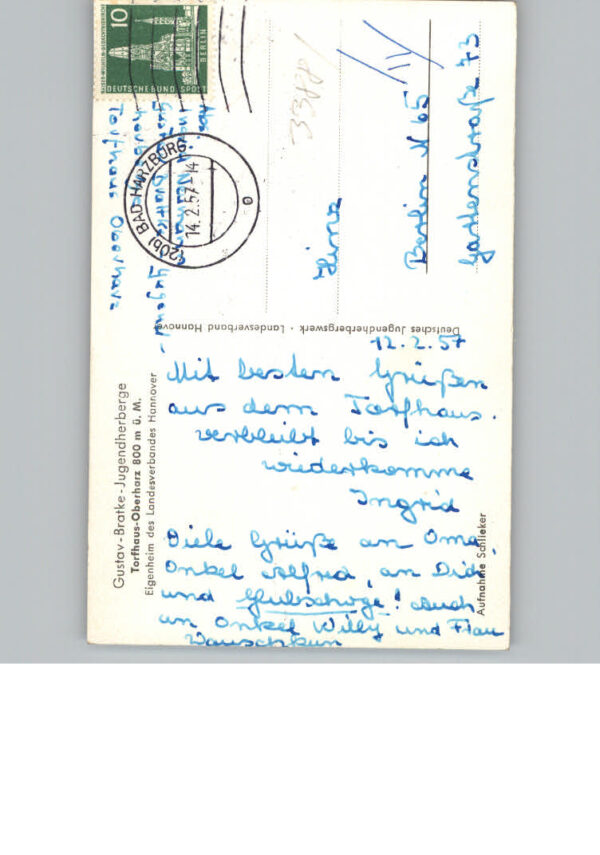 10
DEUTSCHE BUNDESPOST
BERLIN
(20b) BAD HARZBURG
14.2.57-14
o
Abs.:
Jugend-
Torfhaus Oberharz
3388
IV
Berlin N 65
Gartenstraße 73
Deutsches Jugendherbergswerk · Landesverband Hannover
12.2.57
Mit besten Grüßen
aus dem Torfhaus.
verbleibt bis ich
wiederkomme
Ingrid
Viele Grüße an Oma,
Onkel Alfred, an Dich
und ! Auch
an Onkel Willy und Frau
Gustav-Bratke-Jugendherberge
Torfhaus-Oberharz 800 m ü. M.
Eigenheim des Landesverbandes Hannover
Aufnahme Schlieker